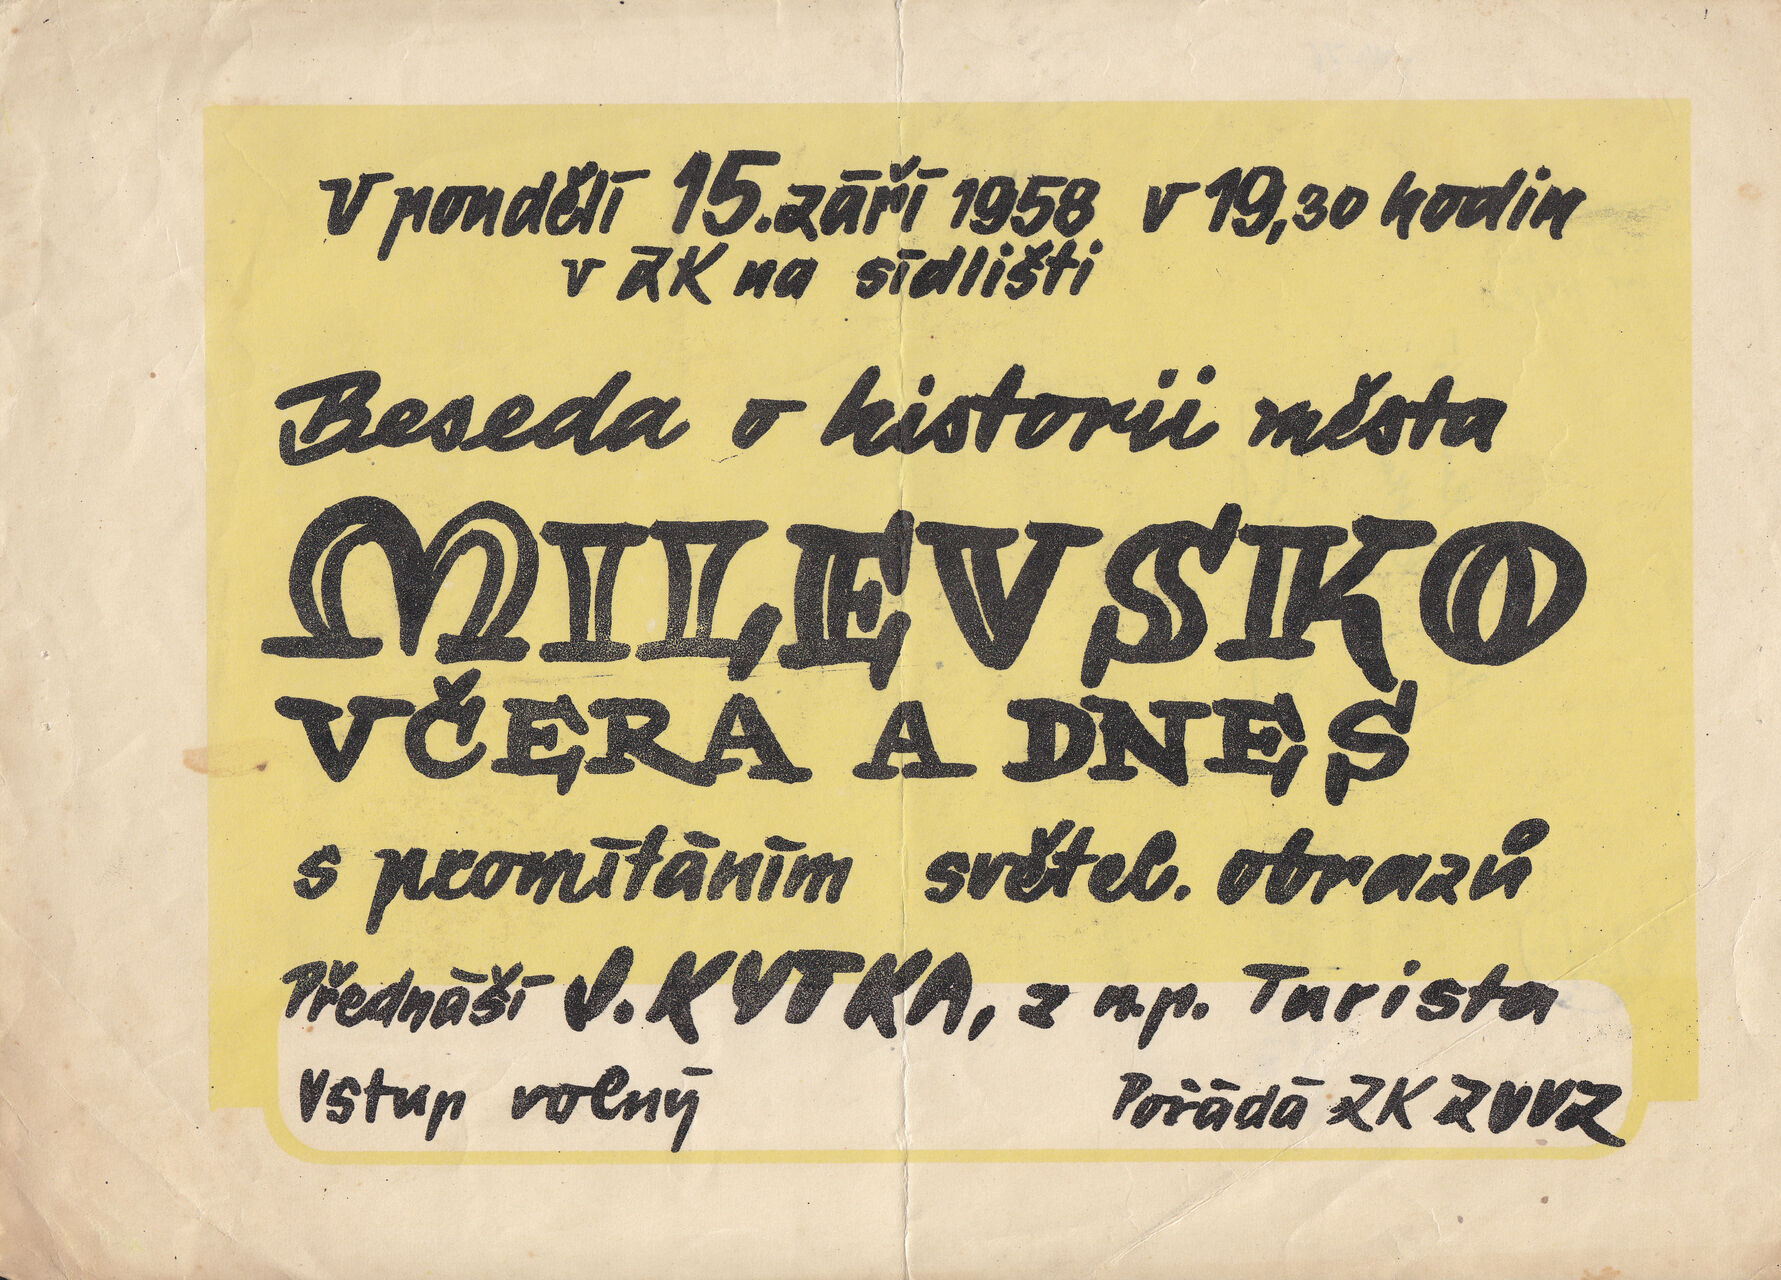 V pondělí 15. září 1958 v 19,30 hodin
v ZK na sídlišti
Beseda o historii města
MILEVSKO
VČERA A DNES
s promítáním světel. obrazů
Přednáší V. KYTKA, z n.p. Turista
Vstup volný
Pořádá ZK ZVVZ